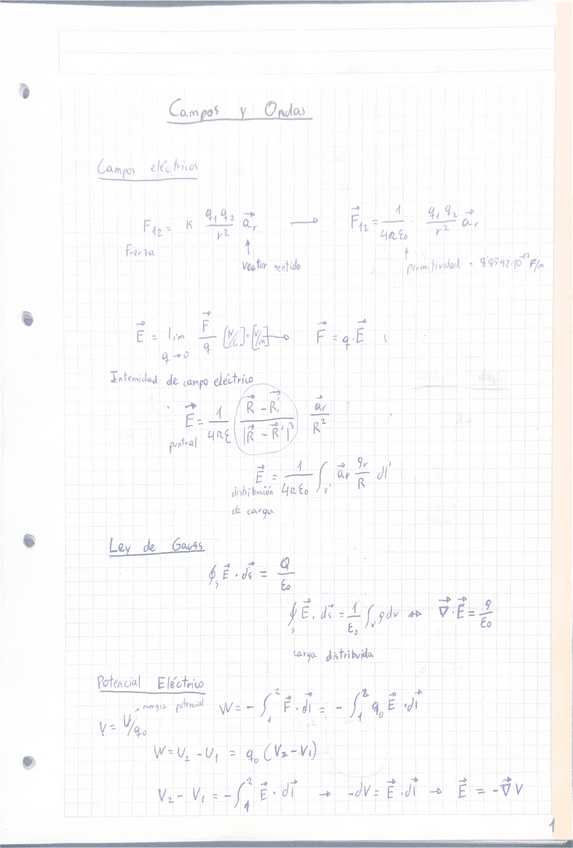 Campos y Ondas
Campos eléctricos
F₁₂ = K q₁q₂/r² a⃗ᵣ → F⃗₁₂ = 1/4πε₀ · q₁q₂/r² a⃗ᵣ
Fuerza
vector sentido
permitividad = 8'8542·10⁻¹² F/m
E⃗ = lim q→0 F⃗/q [N/C]=[V/m] → F⃗ = q·E⃗
Intensidad de campo eléctrico
E⃗ = 1/4πε (R⃗ - R⃗')/|R⃗ - R⃗'|³ a⃗ᵣ/R²
puntual
E⃗ = 1/4πε₀ ∫ᵣ' a⃗ᵣ ρᵥ/R dl'
distribución
de carga
Ley de Gauss
∮ₛ E⃗ · ds⃗ = Q/ε₀
∮ₛ E⃗ · ds⃗ = 1/ε₀ ∫ᵥ ρdv ⇔ ∇⃗·E⃗ = ρ/ε₀
carga distribuida
Potencial Eléctrico
energía potencial
V = U/q₀
W = - ∫₁² F⃗ · dl⃗ = - ∫₁² q₀ E⃗ · dl⃗
W = U₂ - U₁ = q₀ (V₂ - V₁)
V₂ - V₁ = - ∫₁² E⃗ · dl⃗ → -dV = E⃗ · dl⃗ → E⃗ = -∇⃗V
1